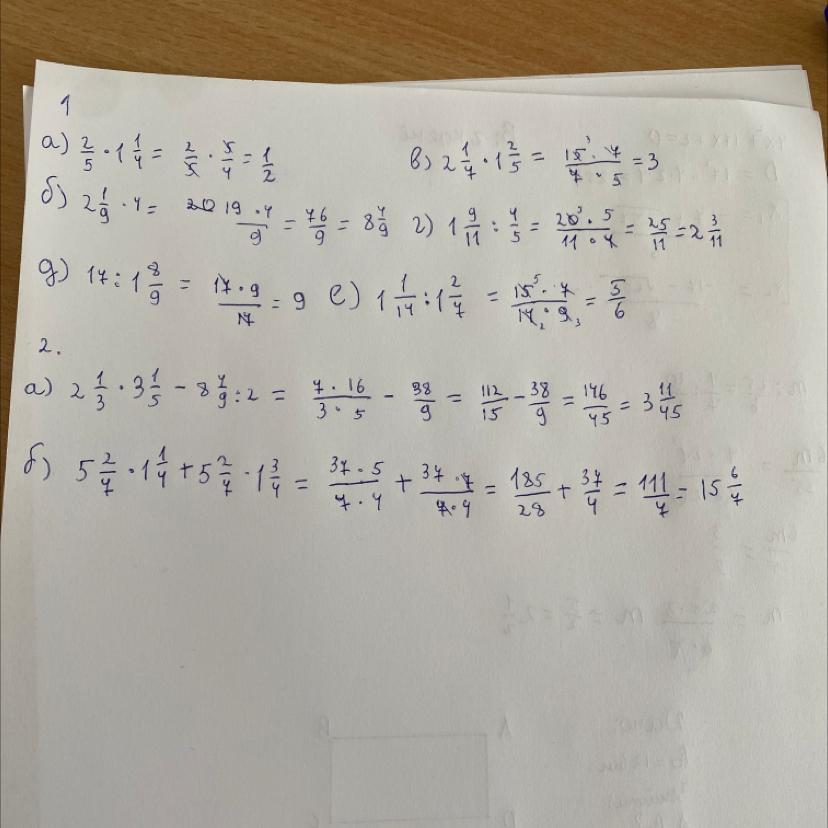 1
а) 2/5 · 1 1/4 = 2/5 · 5/4 = 1/2 в) 2 1/7 · 1 2/5 = 15³ · 7 / 7 · 5 = 3
б) 2 1/9 · 4 = 19 · 4 / 9 = 76/9 = 8 4/9 г) 1 9/11 : 4/5 = 20³ · 5 / 11 · 4 = 25/11 = 2 3/11
д) 17 : 1 8/9 = 17 · 9 / 17 = 9 е) 1 1/14 : 1 2/7 = 15⁵ · 7 / 14₂ · 9₃ = 5/6
2.
а) 2 1/3 · 3 1/5 - 8 4/9 : 2 = 7 · 16 / 3 · 5 - 38/9 = 112/15 - 38/9 = 146/45 = 3 11/45
б) 5 2/7 · 1 1/4 + 5 2/7 · 1 3/4 = 37 · 5 / 7 · 4 + 37 · 7 / 7 · 4 = 185/28 + 37/4 = 111/7 = 15 6/7